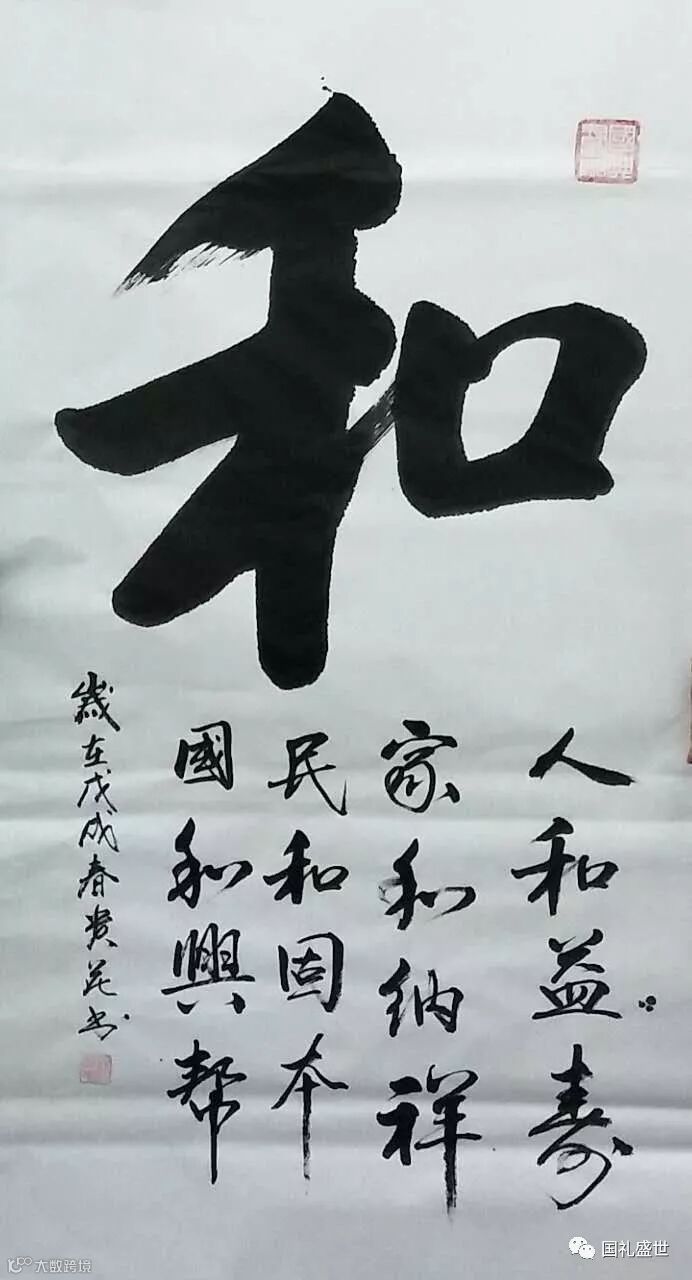 和
人和益寿
家和纳祥
民和固本
國和興帮
歲在戊戌春贵花书
国礼盛世
大数跨境